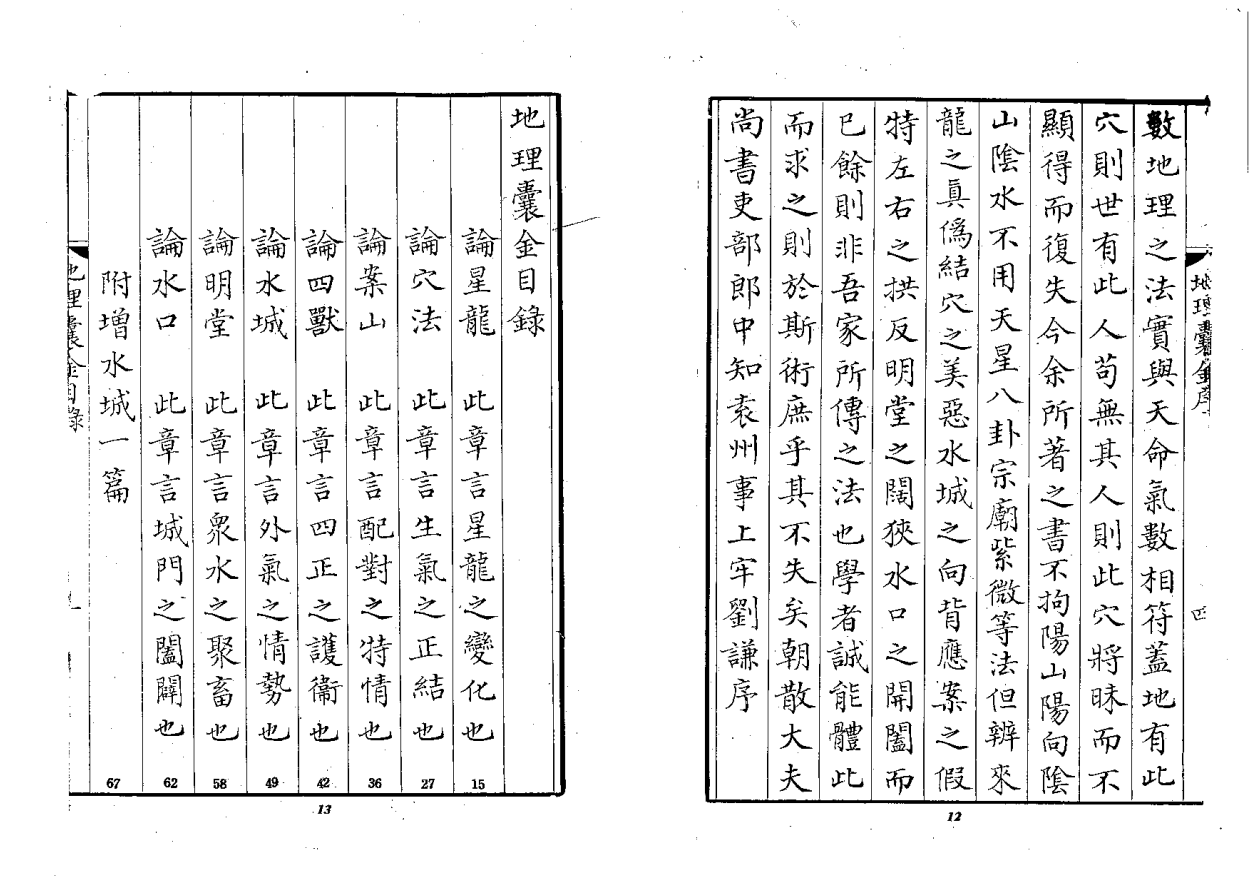 數地理之法實與天命氣數相符蓋地有此
穴則世有此人苟無其人則此穴將昧而不
顯得而復失今余所著之書不拘陽山陽向陰
山陰水不用天星八卦宗廟紫微等法但辨來
龍之眞僞結穴之美惡水城之向背應案之假
特左右之拱反明堂之闊狹水口之開闔而
已餘則非吾家所傳之法也學者誠能體此
而求之則於斯術庶乎其不失矣朝散大夫
尚書吏部郎中知袁州事上牢劉謙序
12
地理囊金目錄
論星龍 此章言星龍之變化也 15
論穴法 此章言生氣之正結也 27
論案山 此章言配對之特情也 36
論四獸 此章言四正之護衞也 42
論水城 此章言外氣之情勢也 49
論明堂 此章言衆水之聚畜也 58
論水口 此章言城門之闔闢也 62
附增水城一篇 67
地理囊金目錄
13